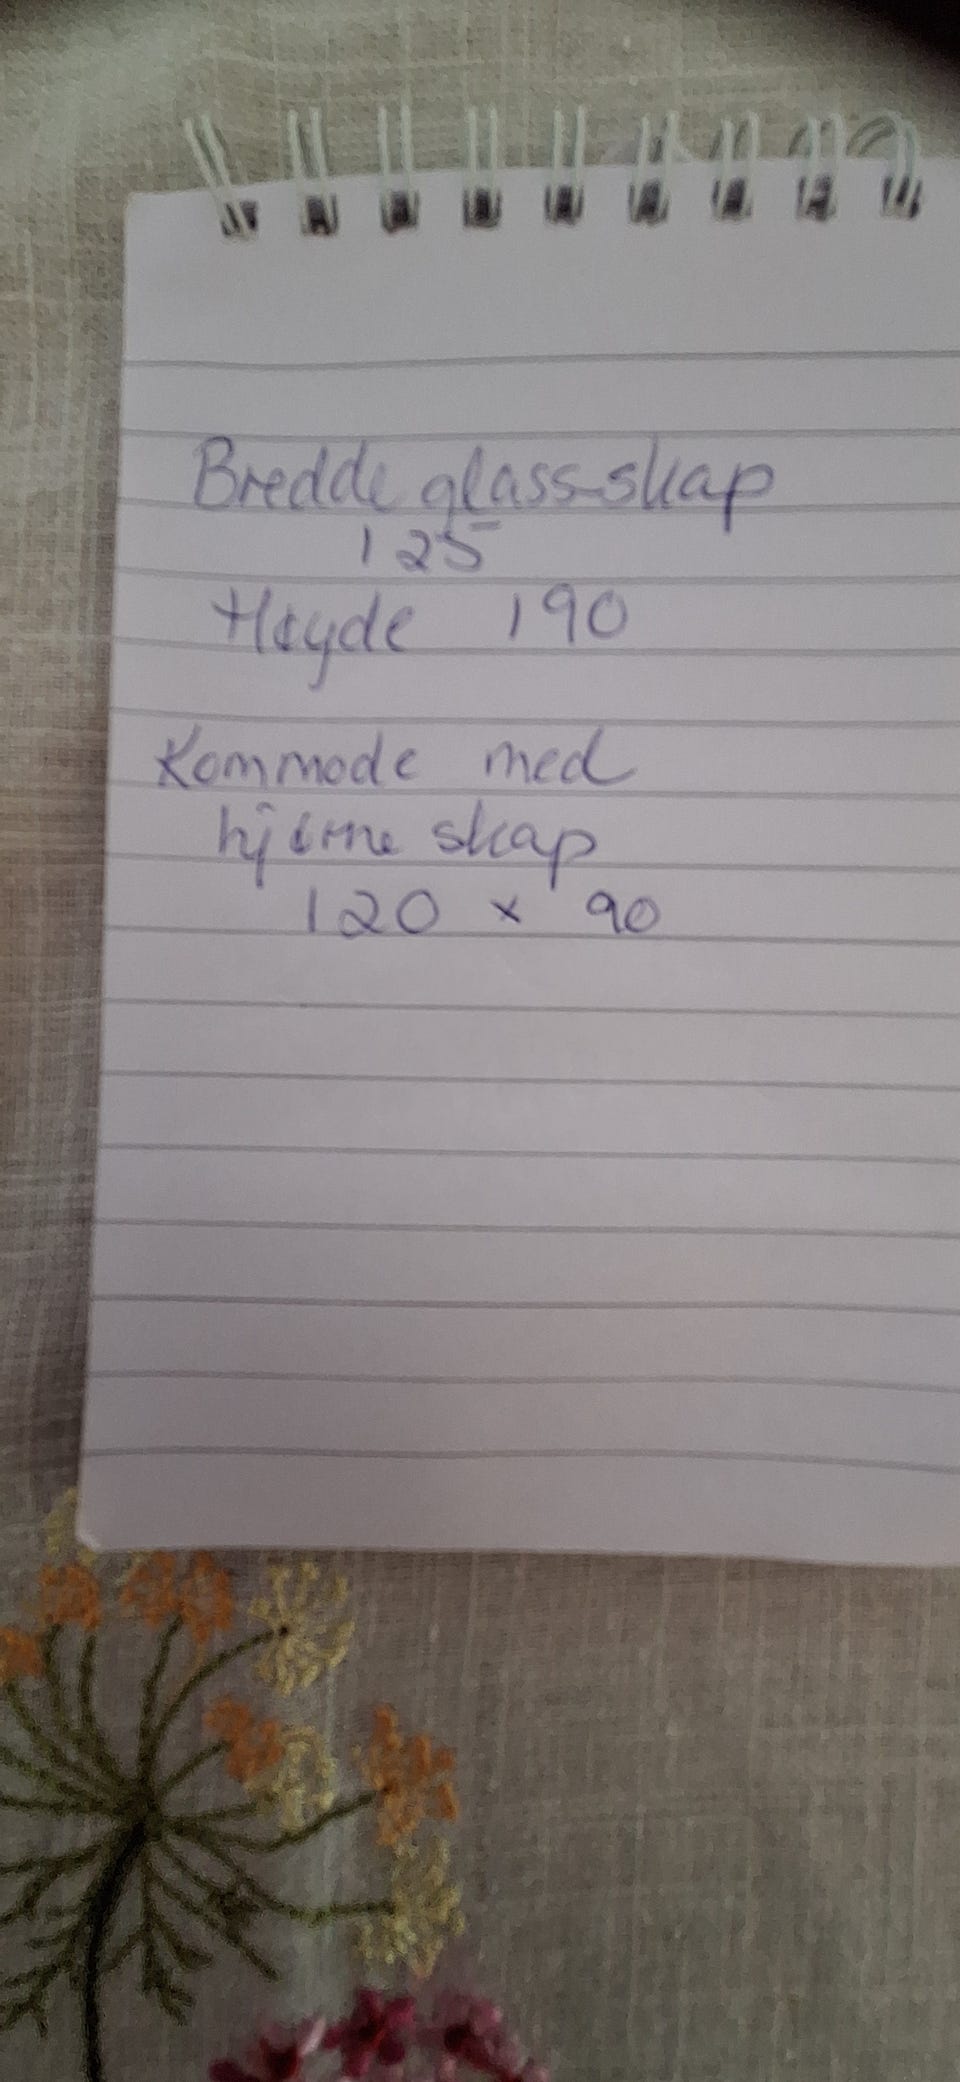 Bredde glass-skap
125
Høyde 190
Kommode med
hjørne skap
120 x 90